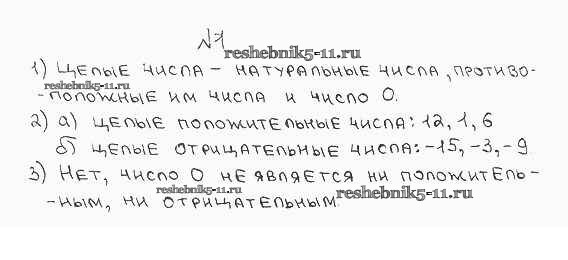 №1
reshebnik5-11.ru
1) Целые числа – натуральные числа, противо-
reshebnik5-11.ru
-положные им числа и число 0.
2) а) целые положительные числа: 12, 1, 6
б) целые отрицательные числа: -15, -3, -9
3) Нет, число 0 не является ни положитель-
reshebnik5-11.ru
reshebnik5-11.ru
-ным, ни отрицательным.